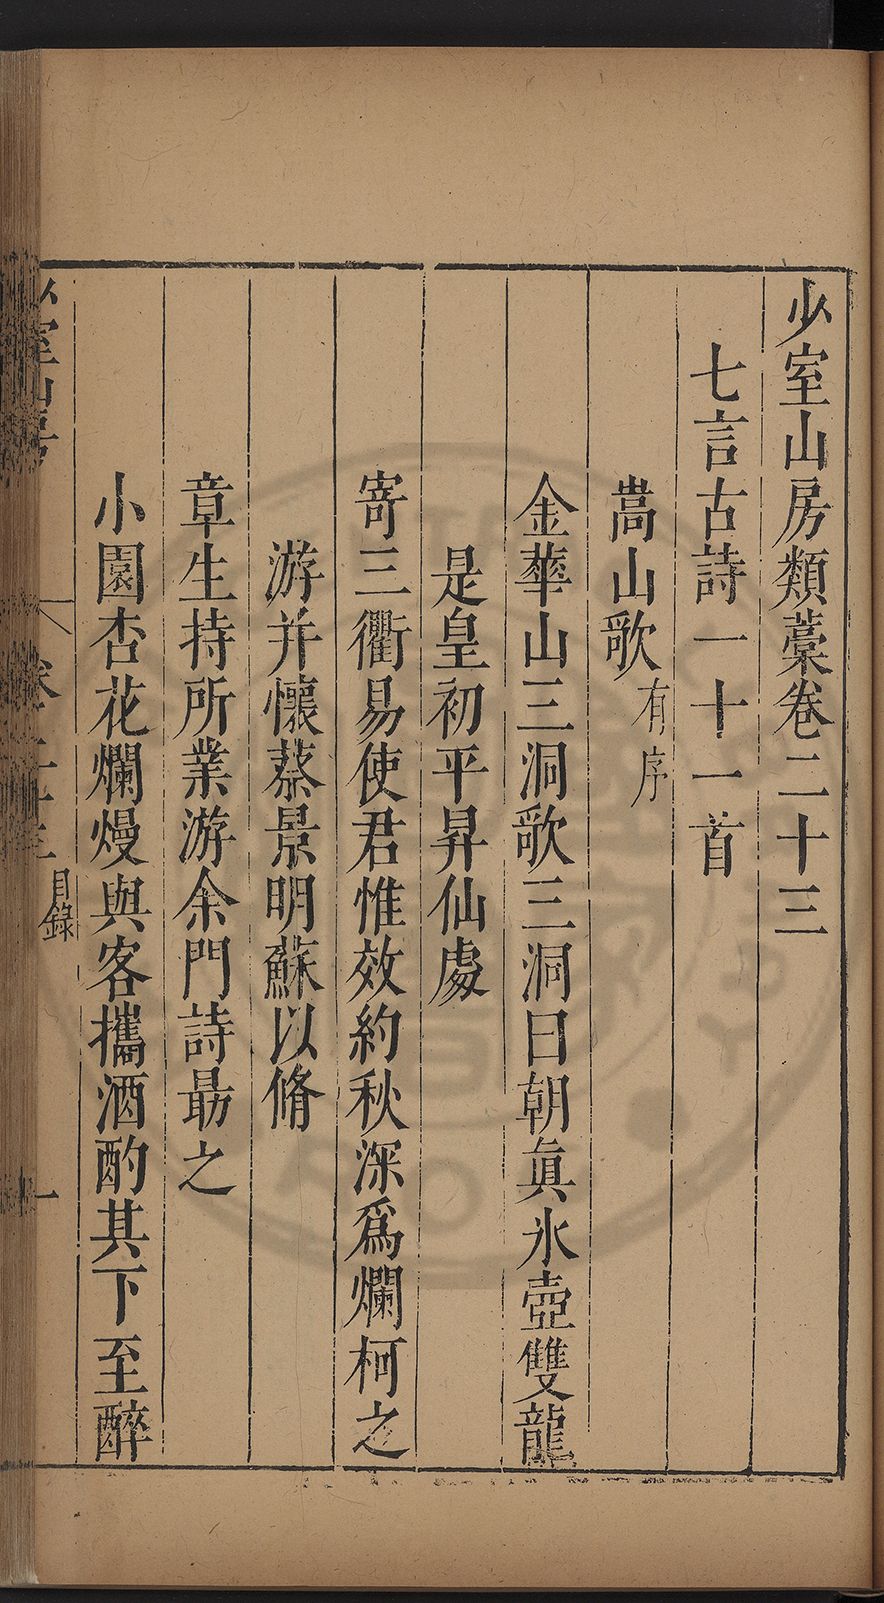 少室山房類藁卷二十三
七言古詩一十一首
嵩山歌有序
金華山三洞歌三洞曰朝眞氷壺雙龍
是皇初平昇仙處
寄三衢易使君惟效約秋深爲爛柯之
游并懷蔡景明蘇以脩
章生持所業游余門詩勗之
小園杏花爛熳與客攜酒酌其下至醉
少室山房 卷二十三 目錄 一